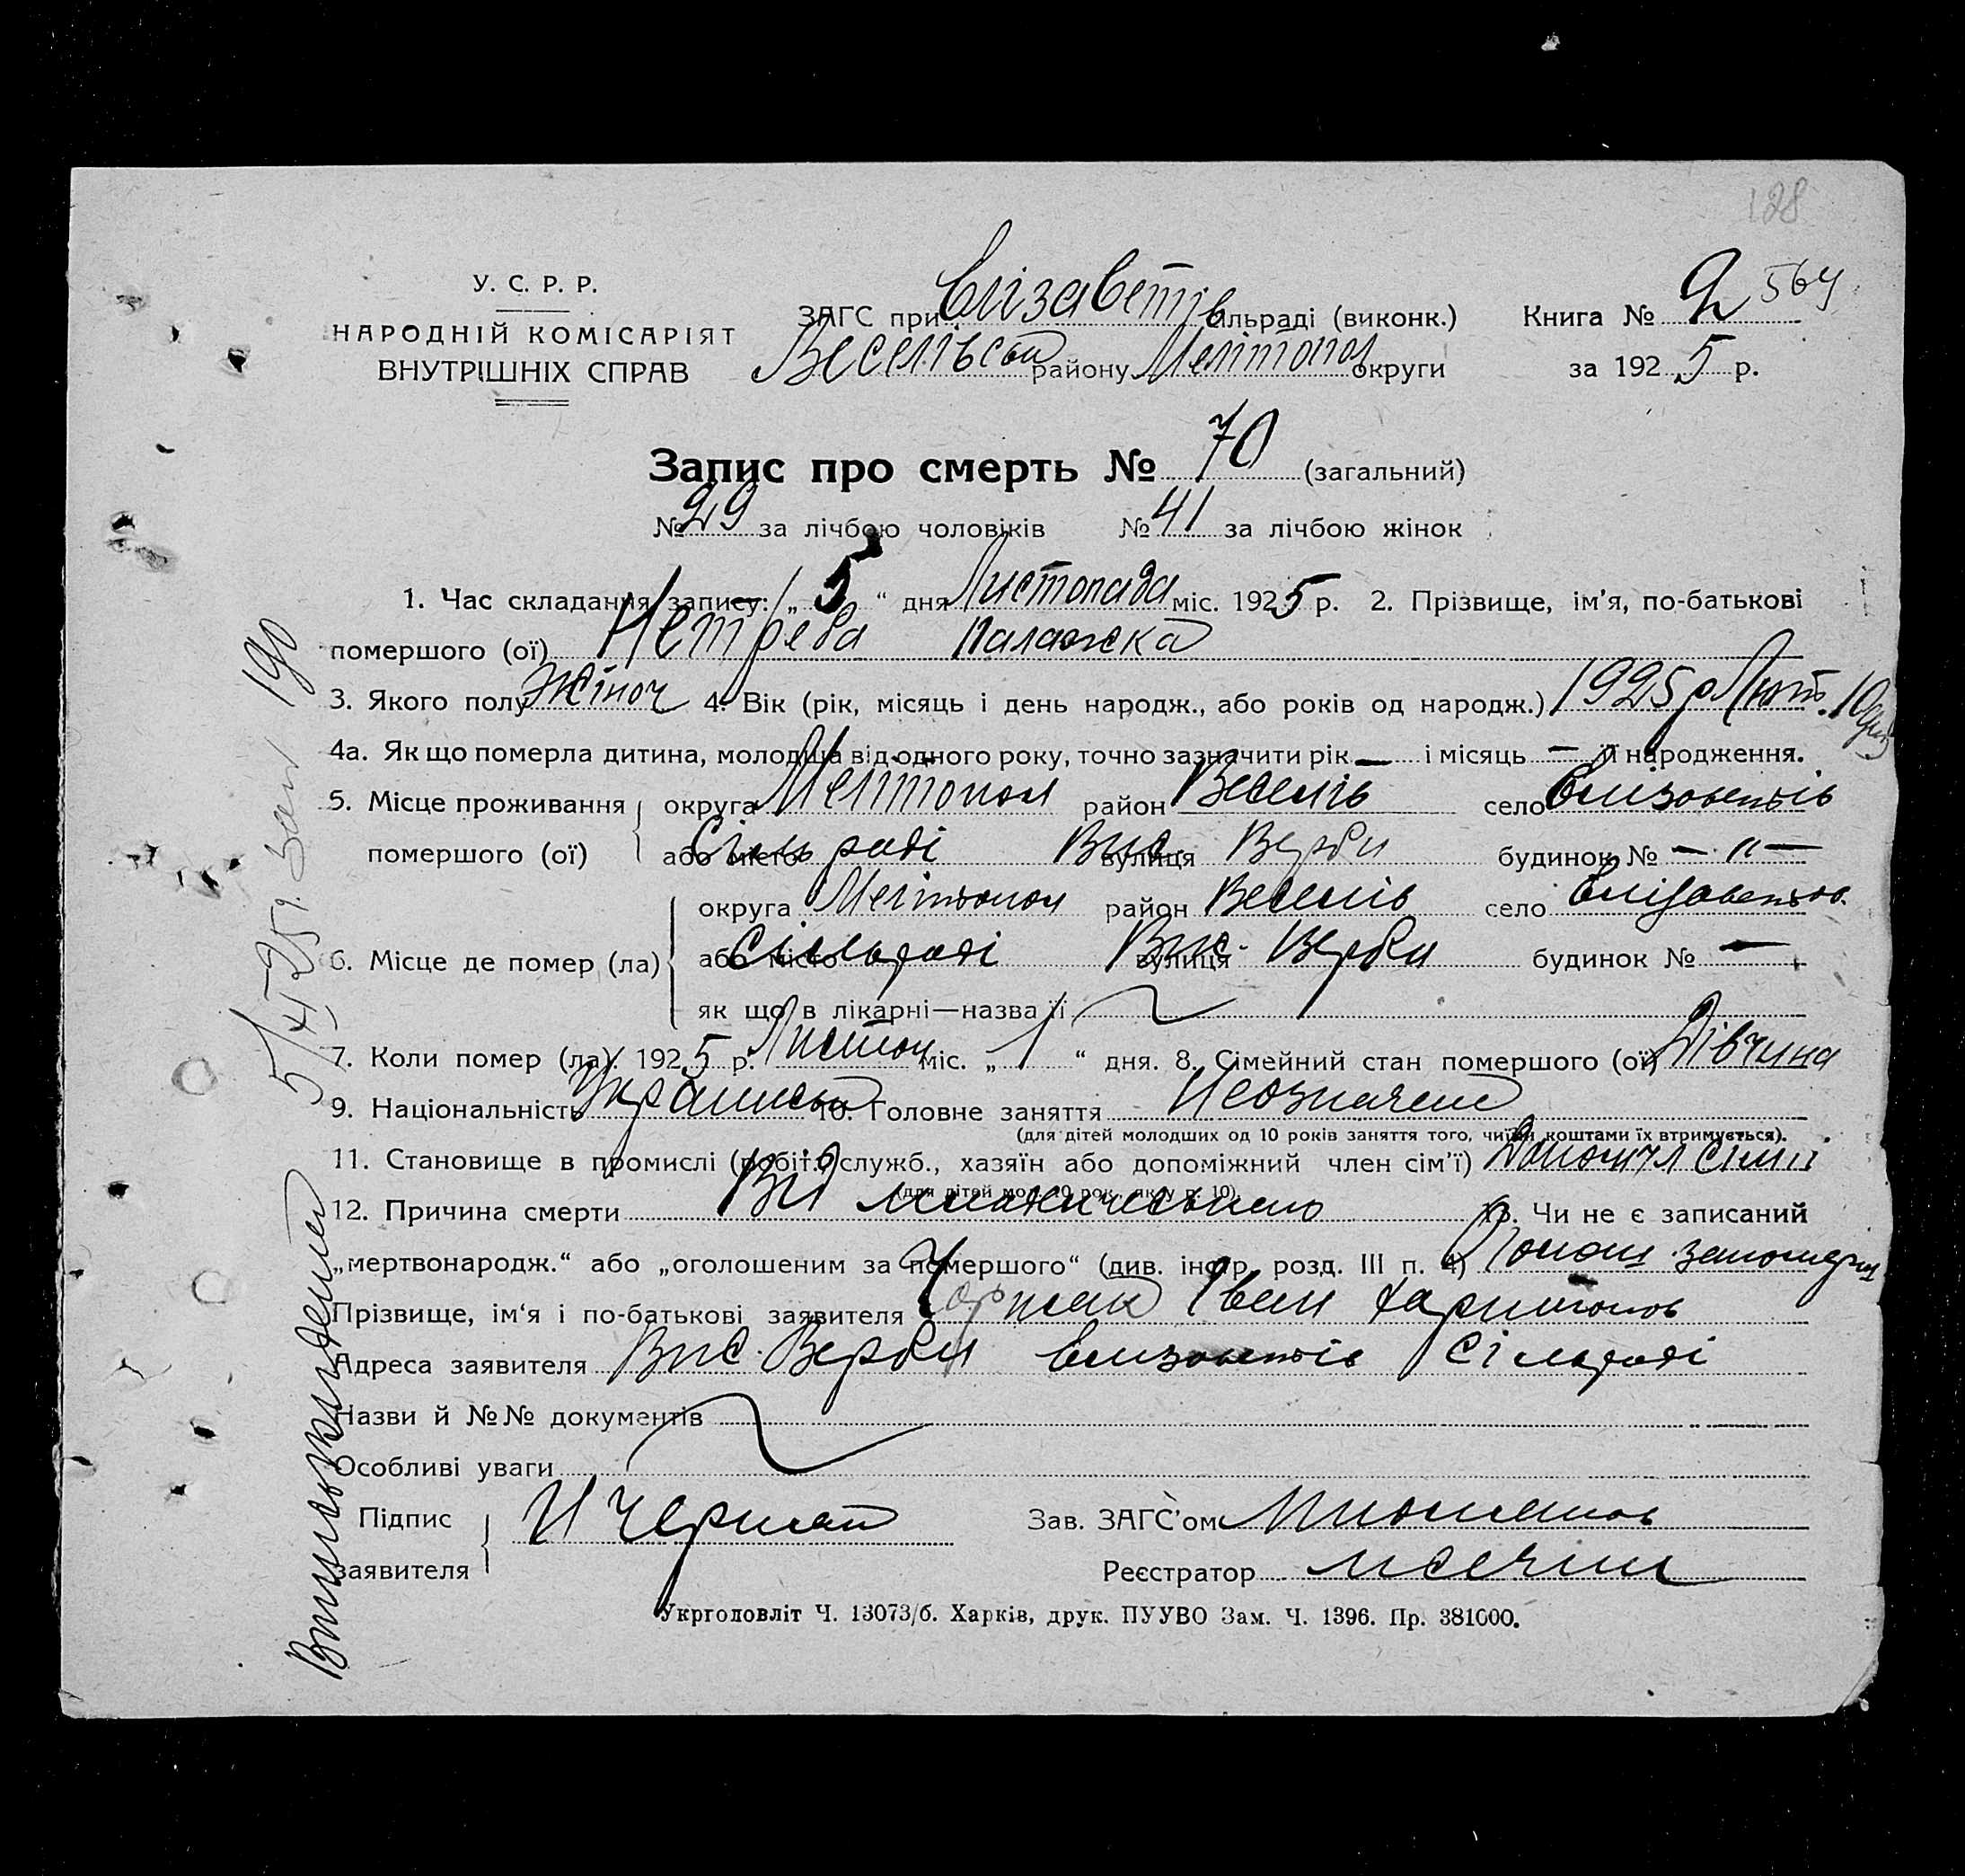 128
У. С. Р. Р.
НАРОДНІЙ КОМІСАРІЯТ
ВНУТРІШНІХ СПРАВ
ЗАГС при Єлізаветів сільраді (виконк.)
Веселівськ району Мелітопол округи
Книга № 2 564
за 1925 р.
Запис про смерть № 70 (загальний)
№ 29 за лічбою чоловіків № 41 за лічбою жінок
1. Час складання запису: „ 5 “ дня Листопада міс. 1925 р. 2. Прізвище, ім'я, по-батькові
помершого (ої) Нетреба Палажка
3. Якого полу Жіноч 4. Вік (рік, місяць і день народж., або років од народж.) 1925 р Лют. 10 дня
4а. Як що померла дитина, молодша від одного року, точно зазначити рік — і місяць — її народження.
5. Місце проживання округа Мелітопол район Веселів село Єлизаветів
помершого (ої) або місто Сільраді вулиця Вис. Верби будинок № — „ —
округа Мелітопол район Веселів село Єлізаветов.
6. Місце де помер (ла) або місто Сільраді вулиця Вис. Верби будинок № —
як що в лікарні—назва її
7. Коли помер (ла). 1925 р. Листоп міс. „ 1 “ дня. 8. Сімейний стан помершого (ої) Дівчина
9. Національність Українськ 10. Головне заняття Неозначене
(для дітей молодших од 10 років заняття того, чиїми коштами їх втримується).
11. Становище в промислі (робітн., служб., хазяїн або допоміжний член сім'ї) Допом чл сім'ї
(для дітей мол. 10 рок., як у п. 10).
12. Причина смерти Від 13. Чи не є записаний
„мертвонароdж.“ або „оголошеним за помершого“ (див. інстр. розд. III п. 4)
Прізвище, ім'я і по-батькові заявителя Іван Харитонов
Адреса заявителя Вис. Верби Єлизаветів Сільраді
Назви й №№ документів
Особливі уваги
Підпис
заявителя И Чермак
Зав. ЗАГС'ом
Реєстратор
Укрголовліт Ч. 13073/б. Харків, друк. ПУУВО Зам. Ч. 1396. Пр. 381000.